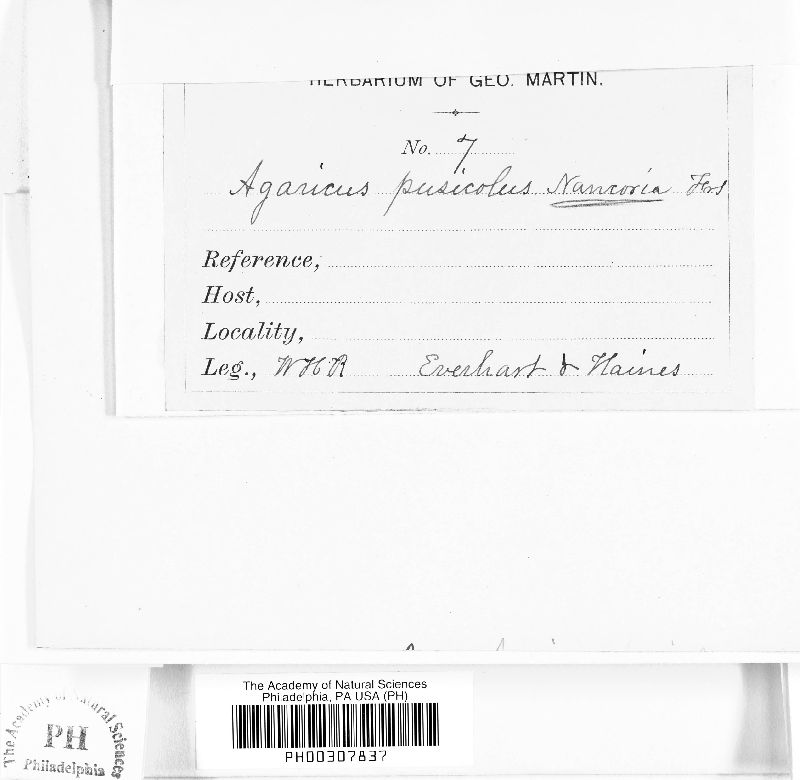 HERBARIUM OF GEO. MARTIN.
No. 7
Agaricus pusicolus Naucoria
Reference,
Host,
Locality,
Leg., WHR Everhart & Haines
The Academy of Natural Sciences
Philadelphia, PA USA (PH)
PH00307837
The Academy of Natural Sciences
PH
Philadelphia